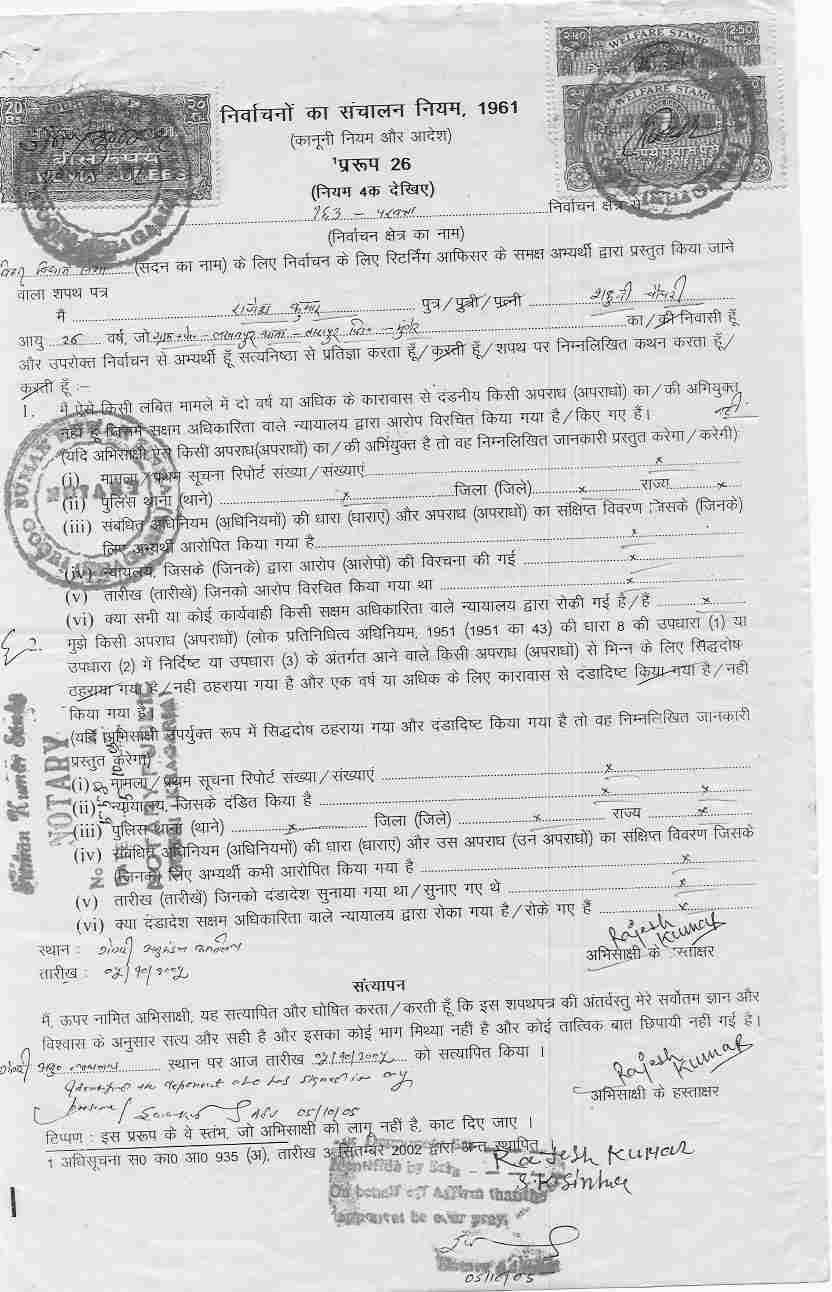 20 RS.
WELFARE STAMP
2.50
WELFARE STAMP
निर्वाचनों का संचालन नियम, 1961
(कानूनी नियम और आदेश)
¹प्ररूप 26
(नियम 4क देखिए)
163 - परबत्ता निर्वाचन क्षेत्र से
(निर्वाचन क्षेत्र का नाम)
बिहार विधान सभा (सदन का नाम) के लिए निर्वाचन के लिए रिटर्निंग आफिसर के समक्ष अभ्यर्थी द्वारा प्रस्तुत किया जाने
वाला शपथ पत्र
मै राजेश कुमार पुत्र/पुत्री/पत्नी शकुनी चौधरी
आयु 26 वर्ष, जो लखनपुर थाना - तारापुर जि० - मुंगेर का/की निवासी हूँ
और उपरोक्त निर्वाचन से अभ्यर्थी हूँ सत्यनिष्ठा से प्रतिज्ञा करता हूँ/करती हूँ/शपथ पर निम्नलिखित कथन करता हूँ/
करती हूँ :–
1. मै ऐसे किसी लंबित मामले में दो वर्ष या अधिक के कारावास से दंडनीय किसी अपराध (अपराधों) का/की अभियुक्त
नहीं हूँ जिसमें सक्षम अधिकारिता वाले न्यायालय द्वारा आरोप विरचित किया गया है/किए गए हैं। नहीं
(यदि अभिसाक्षी ऐसे किसी अपराध(अपराधों) का/की अभियुक्त है तो वह निम्नलिखित जानकारी प्रस्तुत करेगा/करेगी)
(i) मामला/प्रथम सूचना रिपोर्ट संख्या/संख्याएं x
(ii) पुलिस थाना (थाने) x जिला (जिले) x राज्य x
(iii) संबंधित अधिनियम (अधिनियमों) की धारा (धाराएं) और अपराध (अपराधों) का संक्षिप्त विवरण जिसके (जिनके)
लिए अभ्यर्थी आरोपित किया गया है x
(iv) न्यायलय, जिसके (जिनके) द्वारा आरोप (आरोपों) की विरचना की गई x
(v) तारीख (तारीखें) जिनको आरोप विरचित किया गया था x
(vi) क्या सभी या कोई कार्यवाही किसी सक्षम अधिकारिता वाले न्यायालय द्वारा रोकी गई है/हैं x
2. मुझे किसी अपराध (अपराधों) (लोक प्रतिनिधित्व अधिनियम, 1951 (1951 का 43) की धारा 8 की उपधारा (1) या
उपधारा (2) में निर्दिष्ट या उपधारा (3) के अंतर्गत आने वाले किसी अपराध (अपराधों) से भिन्न के लिए सिद्धदोष
ठहराया गया है/नहीं ठहराया गया है और एक वर्ष या अधिक के लिए कारावास से दंडादिष्ट किया गया है/नही
किया गया है।
(यदि अभिसाक्षी उपर्युक्त रूप में सिद्धदोष ठहराया गया और दंडादिष्ट किया गया है तो वह निम्नलिखित जानकारी
प्रस्तुत करेगा)
(i) मामला/प्रथम सूचना रिपोर्ट संख्या/संख्याएं x
(ii) न्यायालय, जिसके दंडित किया है x x
(iii) पुलिस थाना (थाने) x जिला (जिले) x राज्य x
(iv) संबंधित अधिनियम (अधिनियमों) की धारा (धाराएं) और उस अपराध (उन अपराधों) का संक्षिप्त विवरण जिसके
(जिनके) लिए अभ्यर्थी कभी आरोपित किया गया है x
(v) तारीख (तारीखें) जिनको दंडादेश सुनाया गया था/सुनाए गए थे x
(vi) क्या दंडादेश सक्षम अधिकारिता वाले न्यायालय द्वारा रोका गया है/रोके गए हैं x
NOTARY
NOTARY PUBLIC
Rajesh Kumar
स्थान : गोगरी
अभिसाक्षी के हस्ताक्षर
तारीख :
सत्यापन
मैं, ऊपर नामित अभिसाक्षी, यह सत्यापित और घोषित करता/करती हूँ कि इस शपथपत्र की अंतर्वस्तु मेरे सर्वोतम ज्ञान और
विश्वास के अनुसार सत्य और सही है और इसका कोई भाग मिथ्या नहीं है और कोई तात्विक बात छिपायी नहीं गई है।
गोगरी स्थान पर आज तारीख को सत्यापित किया ।
Rajesh Kumar
अभिसाक्षी के हस्ताक्षर
Identified the deponent who has signed in my
presence
05/10/05
टिप्पण : इस प्ररूप के वे स्तंभ, जो अभिसाक्षी को लागू नहीं है, काट दिए जाए ।
1 अधिसूचना स0 का0 आ0 935 (अ), तारीख 3 सितम्बर 2002 द्वारा अन्त स्थापित
Rajesh Kumar
S.K. Sinha
05/10/05